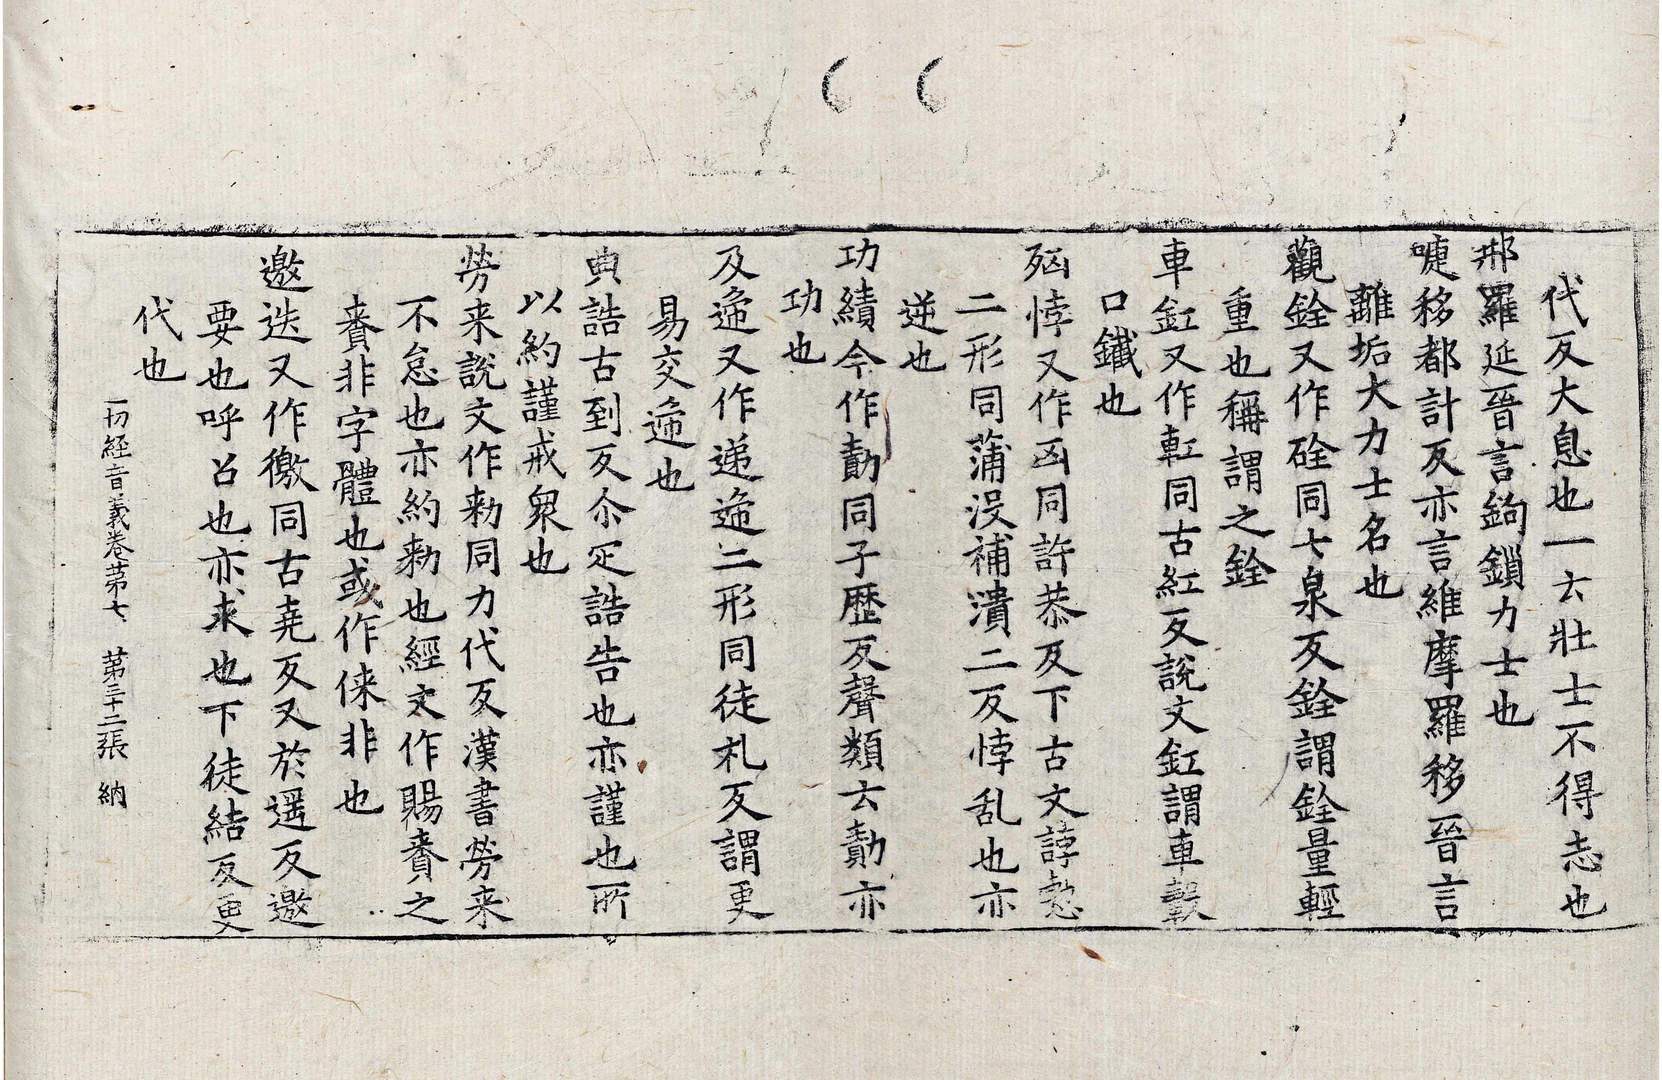 代反大息也一云壯士不得志也
那羅延晉言鉤鎖力士也
嚏移都計反亦言維摩羅移晉言
離垢大力士名也
觀銓又作硂同七泉反銓謂銓量輕
重也稱謂之銓
車釭又作軖同古紅反說文釭謂車轂
口鐵也
㐫悖又作凶同許恭反下古文誖愂
二形同蒲没補潰二反悖乱也亦
逆也
功績今作勣同子歷反聲類云勣亦
功也
及遞又作递遞二形同徒札反謂更
易交遞也
典誥古到反尒疋誥告也亦謹也所
以約謹戒衆也
勞来說文作勑同力代反漢書勞来
不怠也亦約勑也經文作賜賚之
賚非字體也或作倈非也
邀迭又作徼同古堯反又於遥反邀
要也呼召也亦求也下徒結反更
代也
一切經音義卷苐七 苐三十二張 納